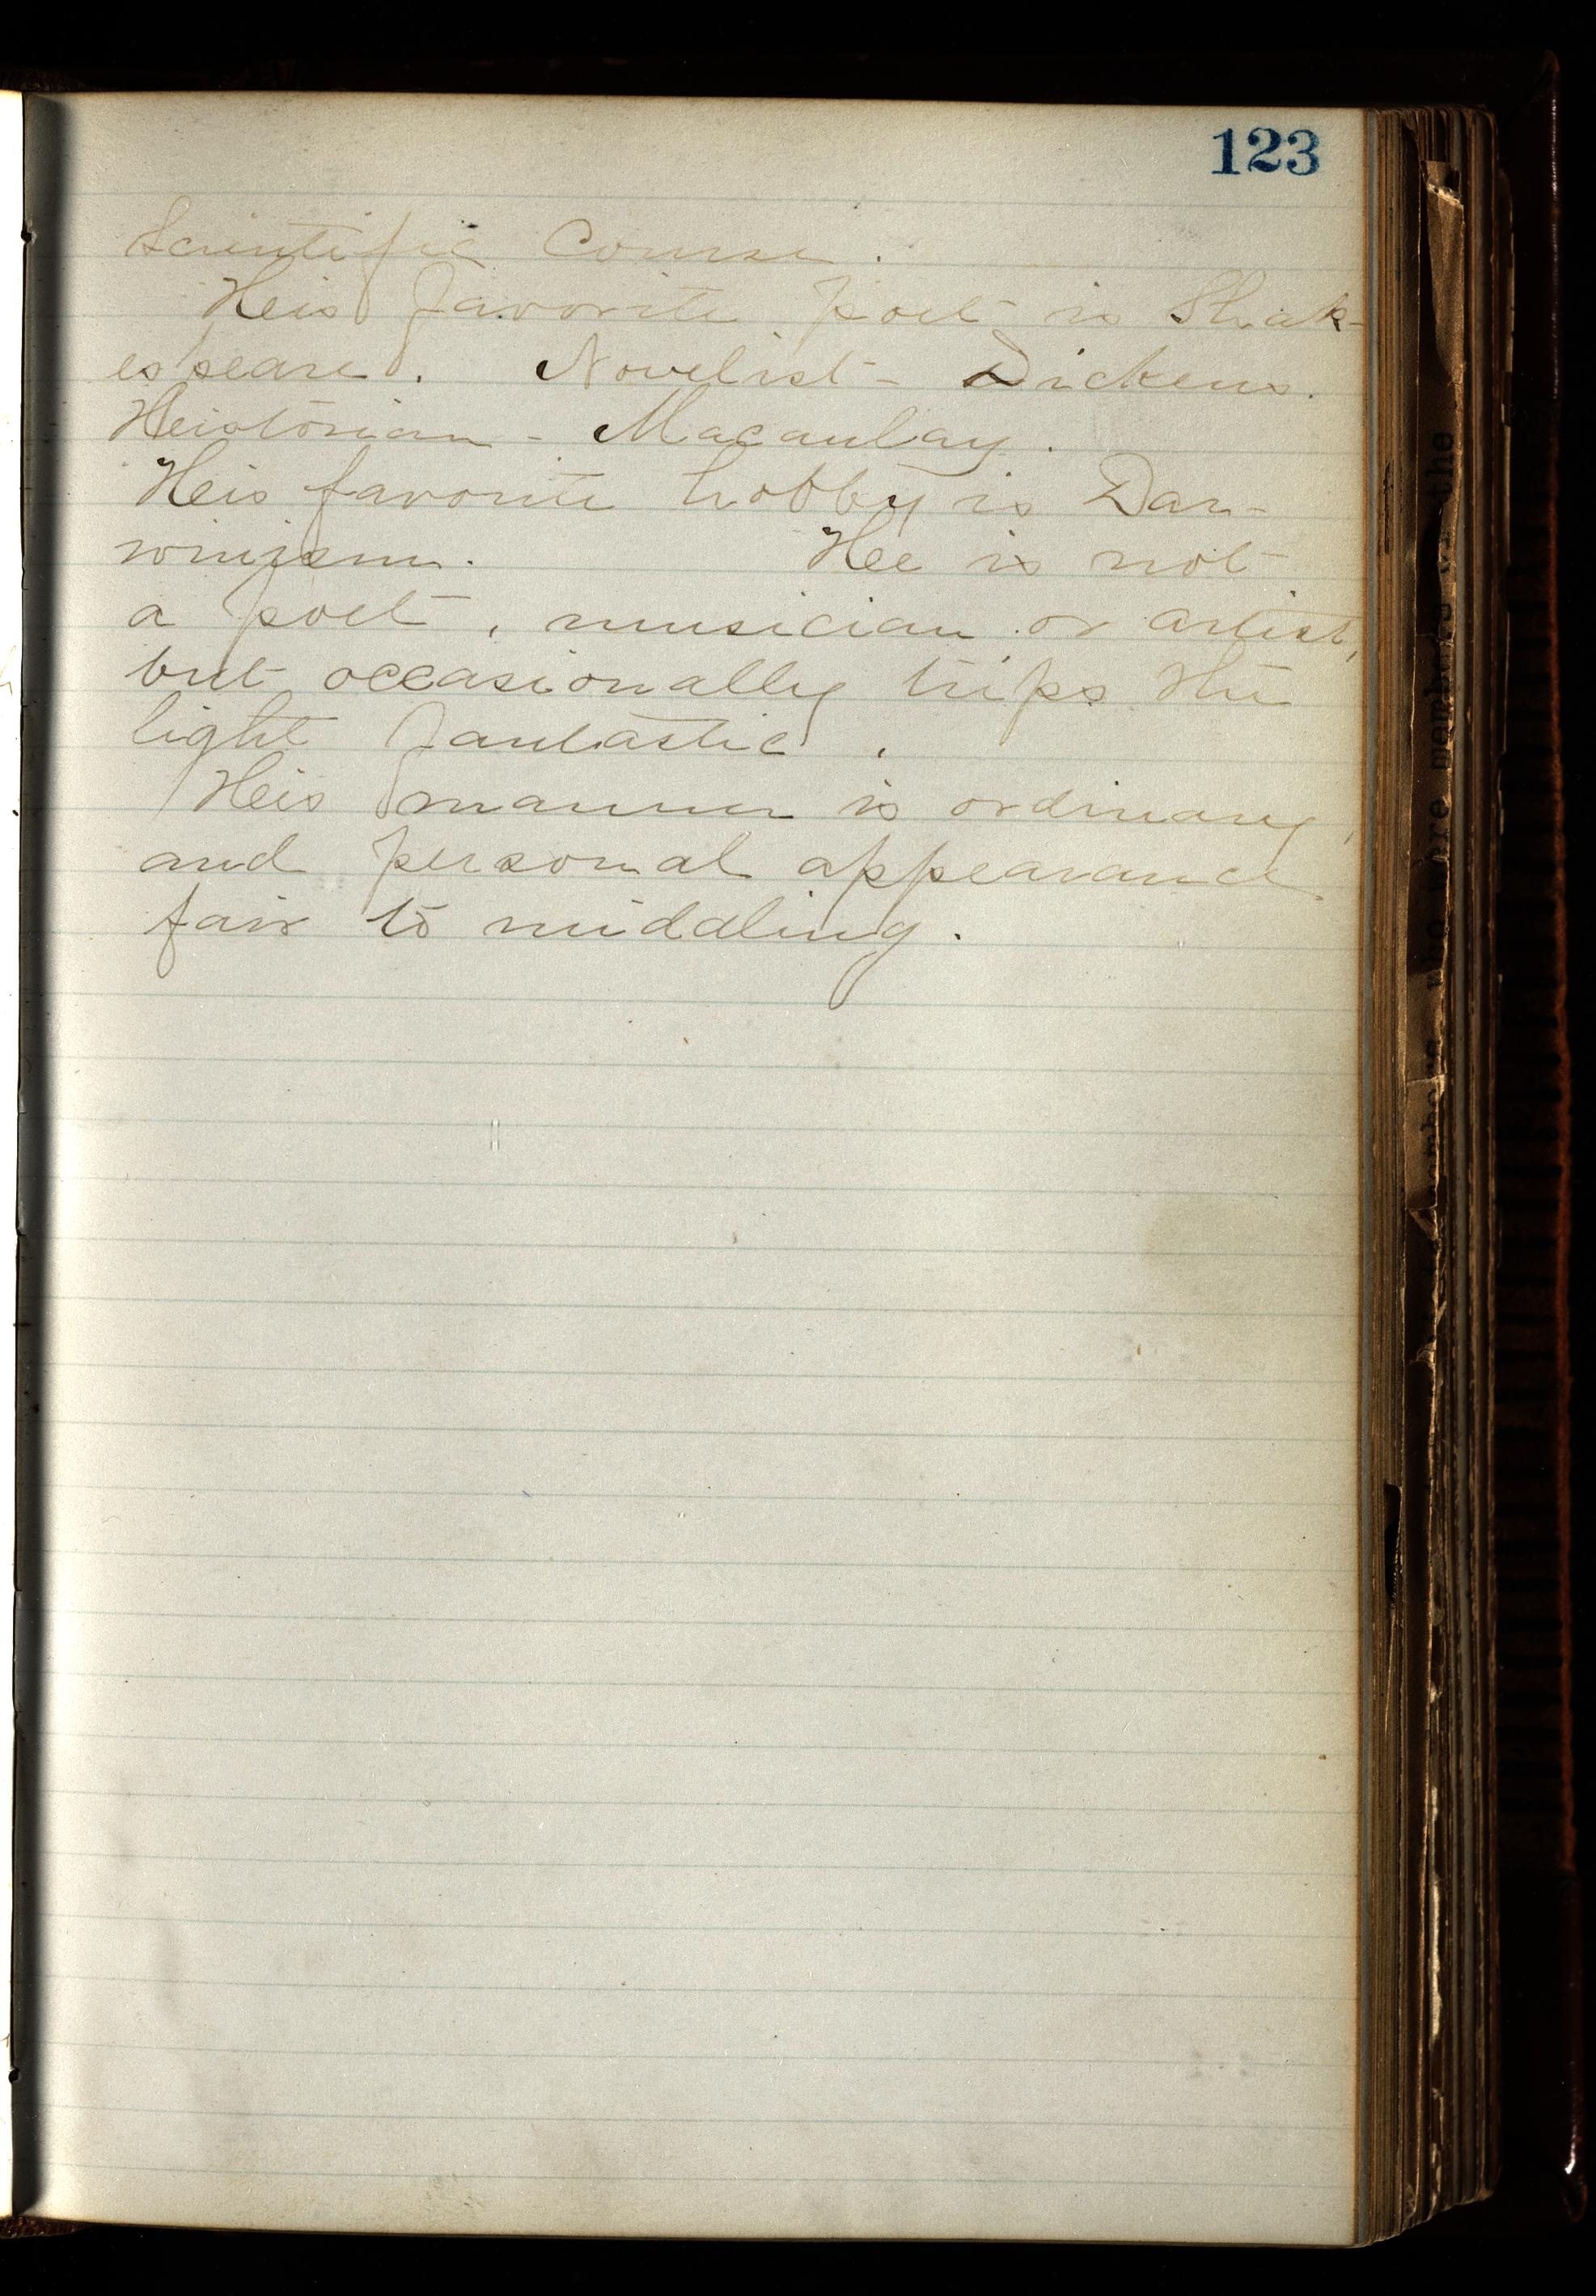 123
Scientific Course.
His favorite poet is Shak-
espeare. Novelist - Dickens.
Historian - Macaulay.
His favorite hobby is Dar-
winism. He is not
a poet, musician or artist,
but occasionally trips the
light fantastic.
His manner is ordinary,
and personal appearance
fair to middling.
who were members of the